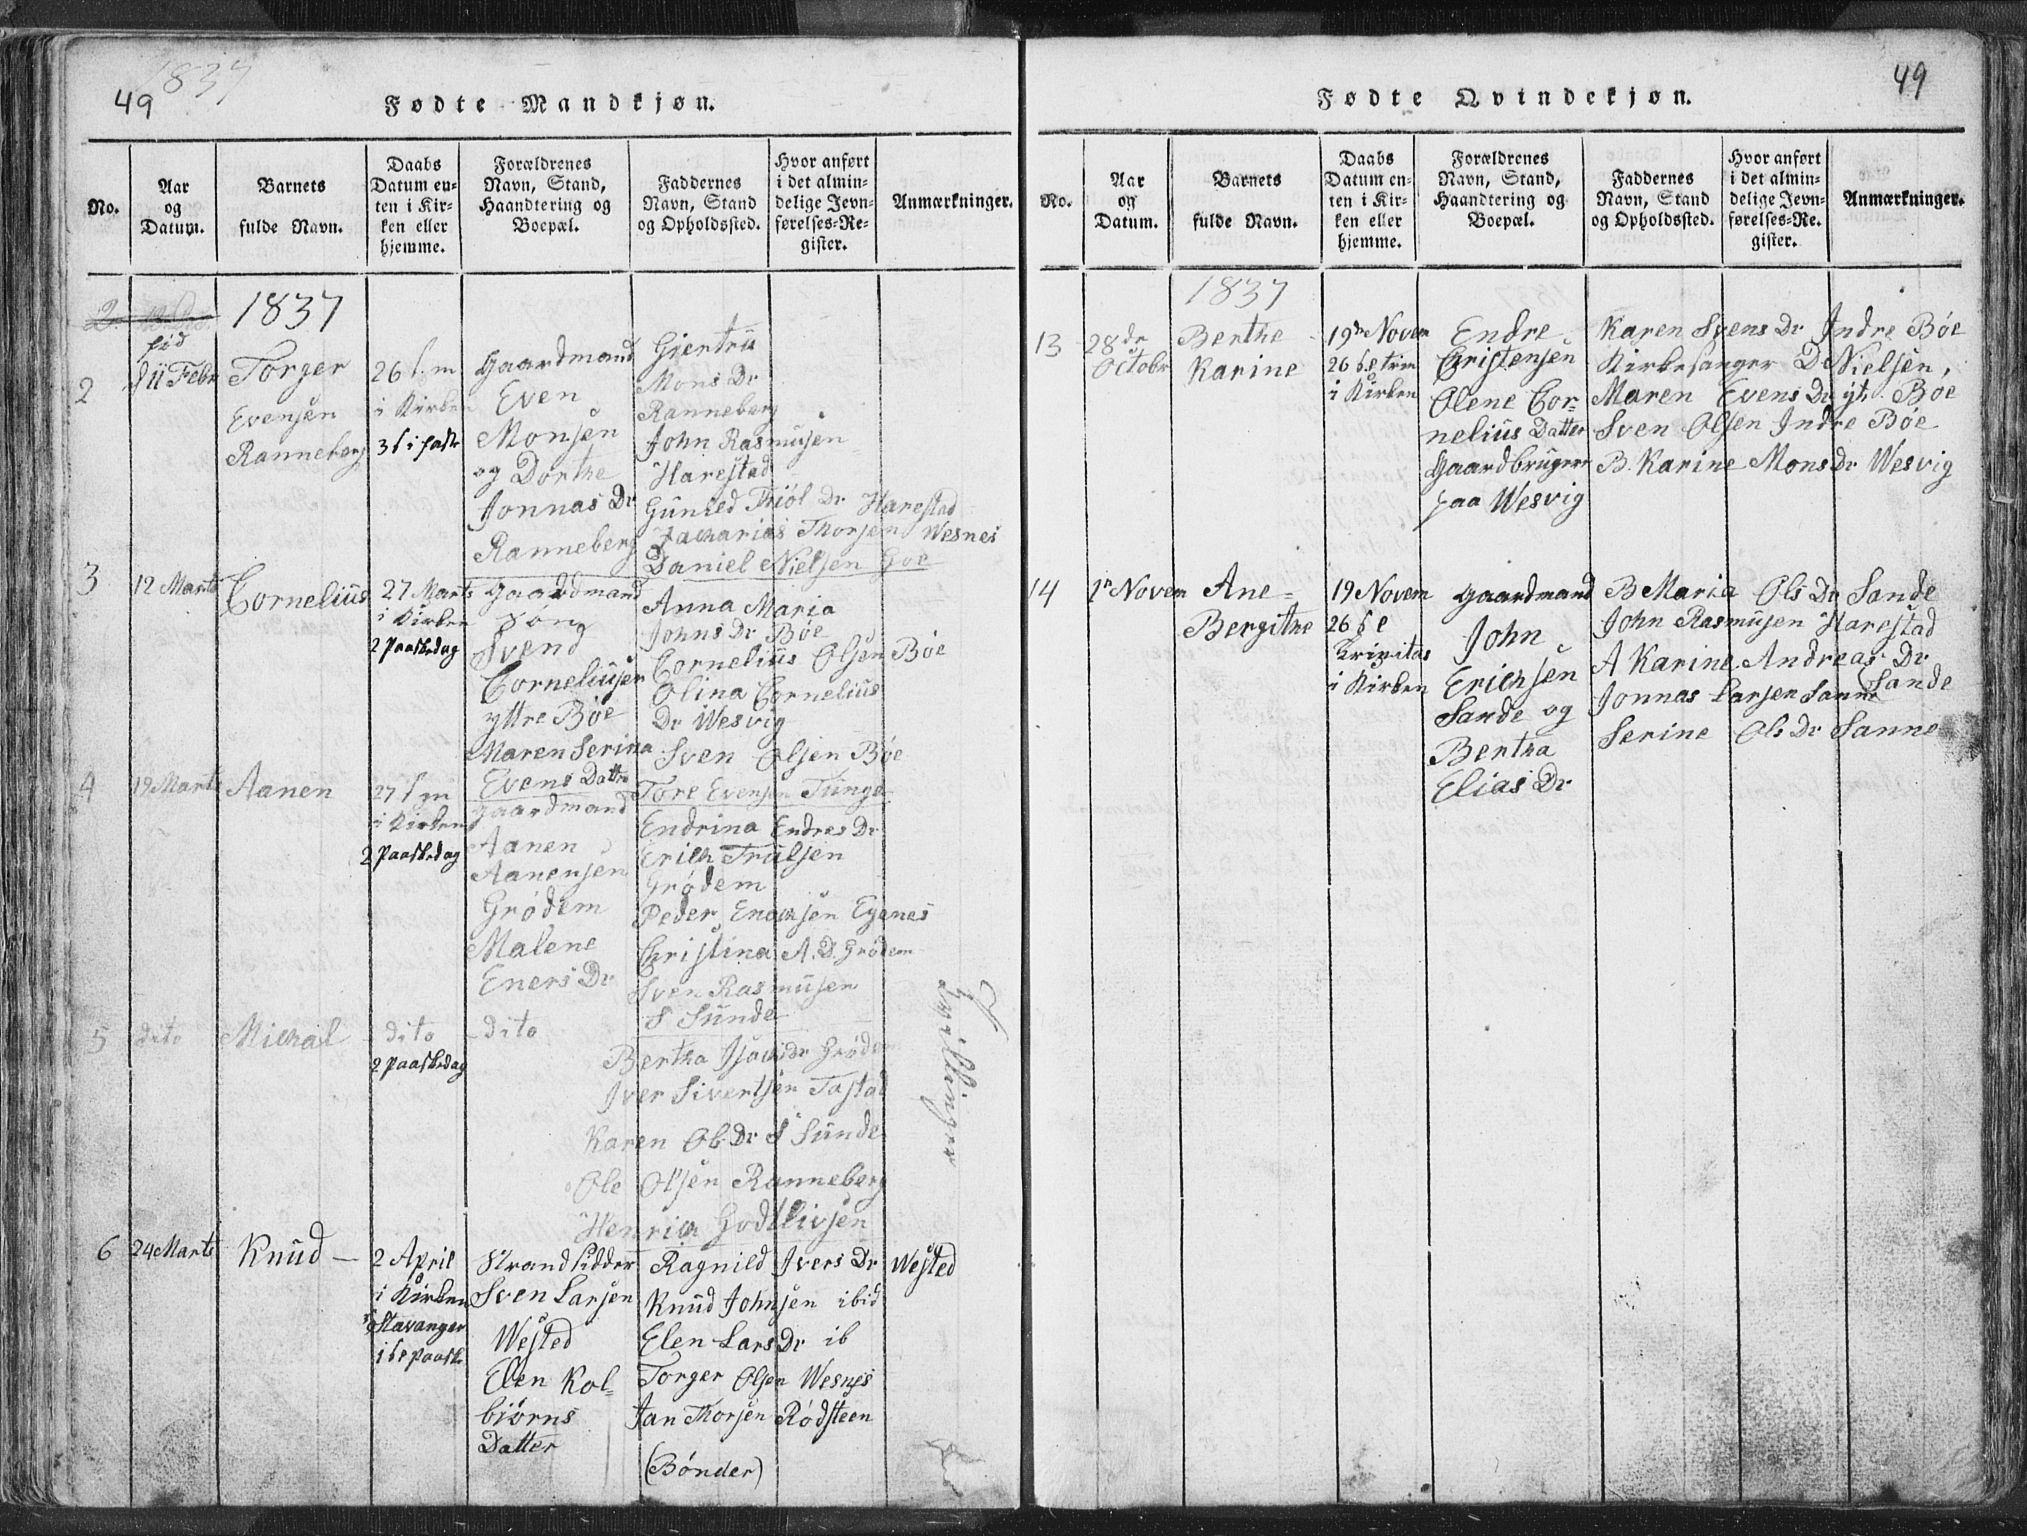 1837
49
Fødte Mandkjøn.
No.
Aar
og
Datum.
Barnets
fulde Navn.
Daabs
Datum en-
ten i Kir-
ken eller
hjemme.
Forældrenes
Navn, Stand,
Haandtering og
Boepæl.
Faddernes
Navn, Stand
og Opholdssted.
Hvor anført
i det almin-
delige Jevn-
førelses-Re-
gister.
Anmærkninger.
2
1837
fød
2
11 Febr
Torger
Evensen
Ranneberg
26
i Kirken
3 s i faste
Gaardmand
Even
Monsen
og Dorthe
Jonnas Dr
Ranneberg
Giertru
Mons Dr
Ranneberg
John Rasmusen
Harestad
Guniled Thiol Dr Harestad
Zacharias Thorsen Wesnes
Daniel Nielsen Goe
3
12 Marts
Cornelius
27 Marts
i Kirken
2 Paaskedag
Gaardmand
Svend
Corneliusen
yttre Bøe
Maren Serina
Evens Datter
Anna Maria
Johns Dr Bøe
Cornelius Olsen Bøe
Olina Cornelius
Dr Wesvig
Sven Olsen Bøe
4
19 Marts
Aanen
27
i Kirken
2 Paaskedag
gaardmand
Aanen
Aanensen
Grødem
Malene
Eners Dr
Tore Evensen Tunge
Endrina Endres Dr
Erich Trulsen
Grødem
Peder Enochsen Egenes
Christina A. D. Grødem
Sven Rasmusen
S Sunde
5
dito
Michal
dito
2 Paaskedag
dito
Bertha Isachs Dr Grødem
Iver Sivertsen Tastad
Karen Ols Dr S Sunde
Ole Olsen Ranneberg
Henrich Godtlivsen
Tvillinger
6
24 Marts
Knud
2 April
i Kirken
Stavanger
1 s e Paaske
Strandsidder
Sven Larsen
Wested
Elen Kol-
biørns
Datter
Ragnild Ivers Dr Wested
Knud Johnsen ibid
Elen Lars Dr ib
Torger Olsen Wesnes
Jan Thorsen Rødsteen
(Bønder)
49
Fødte Qvindekjøn.
No.
Aar
og
Datum.
Barnets
fulde Navn.
Daabs
Datum en-
ten i Kir-
ken eller
hjemme.
Forældrenes
Navn, Stand,
Haandtering og
Boepæl.
Faddernes
Navn, Stand
og Opholdssted.
Hvor anført
i det almin-
delige Jevn-
førelses-Re-
gister.
Anmærkninger.
1837
13
28de
Octobr
Berthe
Karine
19de Novem
26 s e trin
i Kirken
Endre
Christensen
Olene Cor-
nelius Datter
Gaardbruger
paa Wesvig
Karen Svens Dr Indre Bøe
Kirkesanger D Nielsen,
Maren Evens Dr yt. Bøe
Sven Olsen Indre Bøe
B. Karine Mons Dr Wesvig
14
1r Novem
Ane
Bergithe
19 Novem
26 s e
i Kirken
gaardmand
John
Erichsen
Sande og
Bertha
Elias Dr
B Maria Ols Dr Sande
John Rasmusen Harestad
A Karine Andreas Dr
Sande
Jonnas Larsen Sanne
Serine Ols Dr Sanne